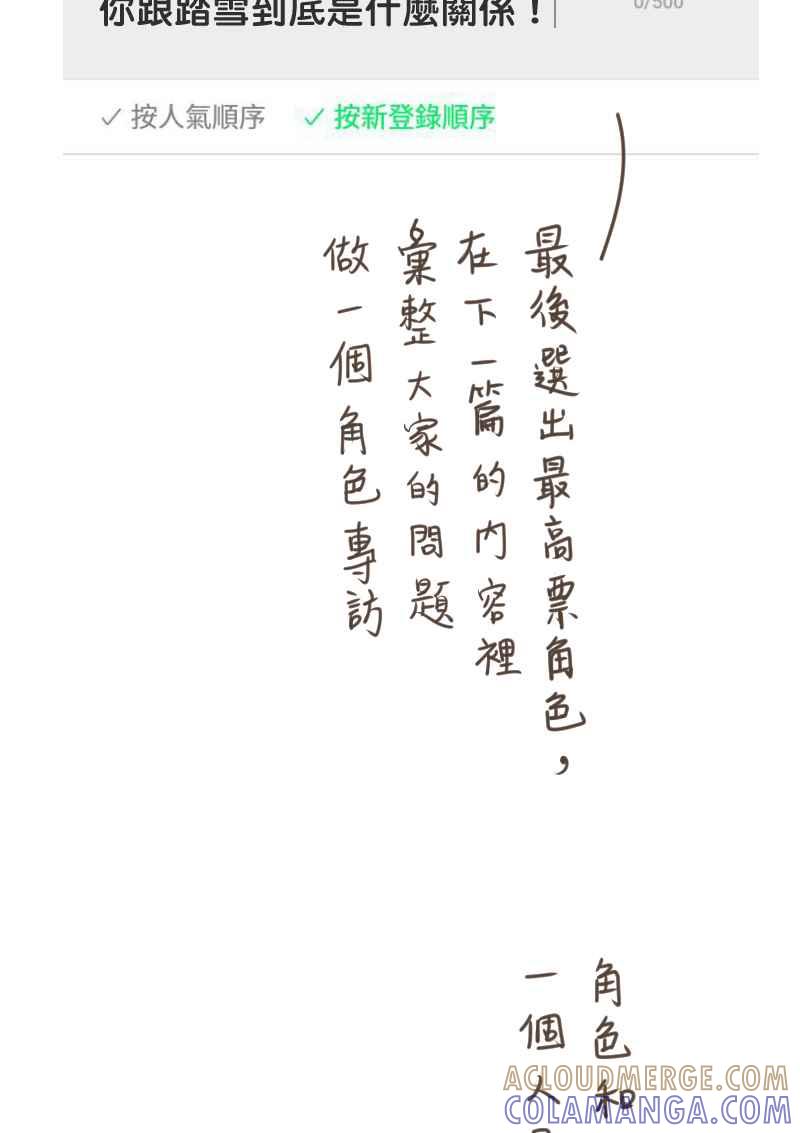 你跟踏雪到底是什麼關係！
0/500
✓ 按人氣順序 ✓ 按新登錄順序
最後選出最高票角色，
在下一篇的內容裡
彙整大家的問題
做一個角色專訪
角色和
一個人
ACLOUDMERGE.COM
COLAMANGA.COM